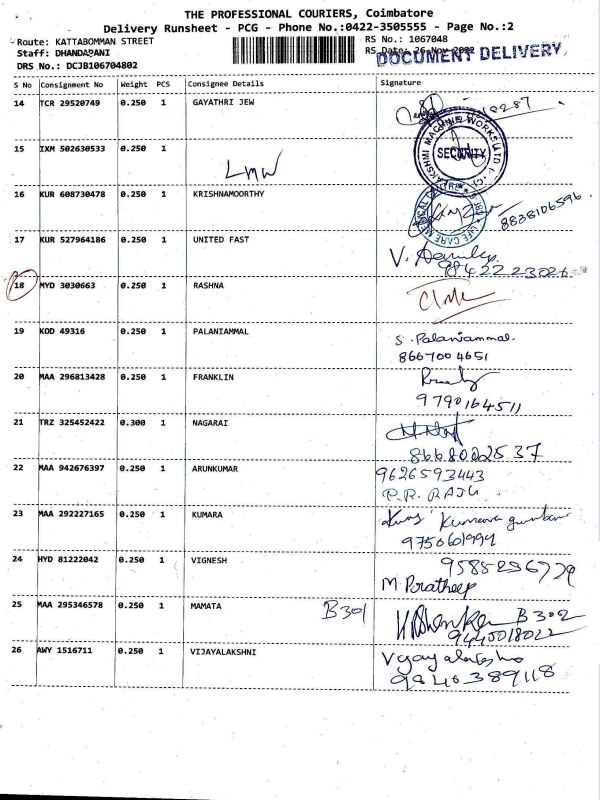 THE PROFESSIONAL COURIERS, Coimbatore
Delivery Runsheet - PCG - Phone No.:0422-3505555 - Page No.:2
Route: KATTABOMMAN STREET RS No.: 1067048
Staff: DHANDAPANI RS Date: 26 Nov 2022
DOCUMENT DELIVERY
DRS No.: DCJB106704802
S No Consignment No Weight PCS Consignee Details Signature
14 TCR 29520749 0.250 1 GAYATHRI JEW
15 IXM 502630533 0.250 1 LMW SECURITY
16 KUR 608730478 0.250 1 KRISHNAMOORTHY 8838106596
17 KUR 527964186 0.250 1 UNITED FAST V.
9842223026
18 MYD 3030663 0.250 1 RASHNA
19 KOD 49316 0.250 1 PALANIAMMAL S. Palaniammal.
8667004651
20 MAA 296813428 0.250 1 FRANKLIN
9790164511
21 TRZ 325452422 0.300 1 NAGARAI
8668022537
22 MAA 942676397 0.250 1 ARUNKUMAR 9626593443
P.R. RAJU
23 MAA 292227165 0.250 1 KUMARA
9750661994
24 HYD 81222042 0.250 1 VIGNESH
M. Paratheep
25 MAA 295346578 0.250 1 MAMATA B301 B 302
9445018022
26 AWY 1516711 0.250 1 VIJAYALAKSHNI
9840389118